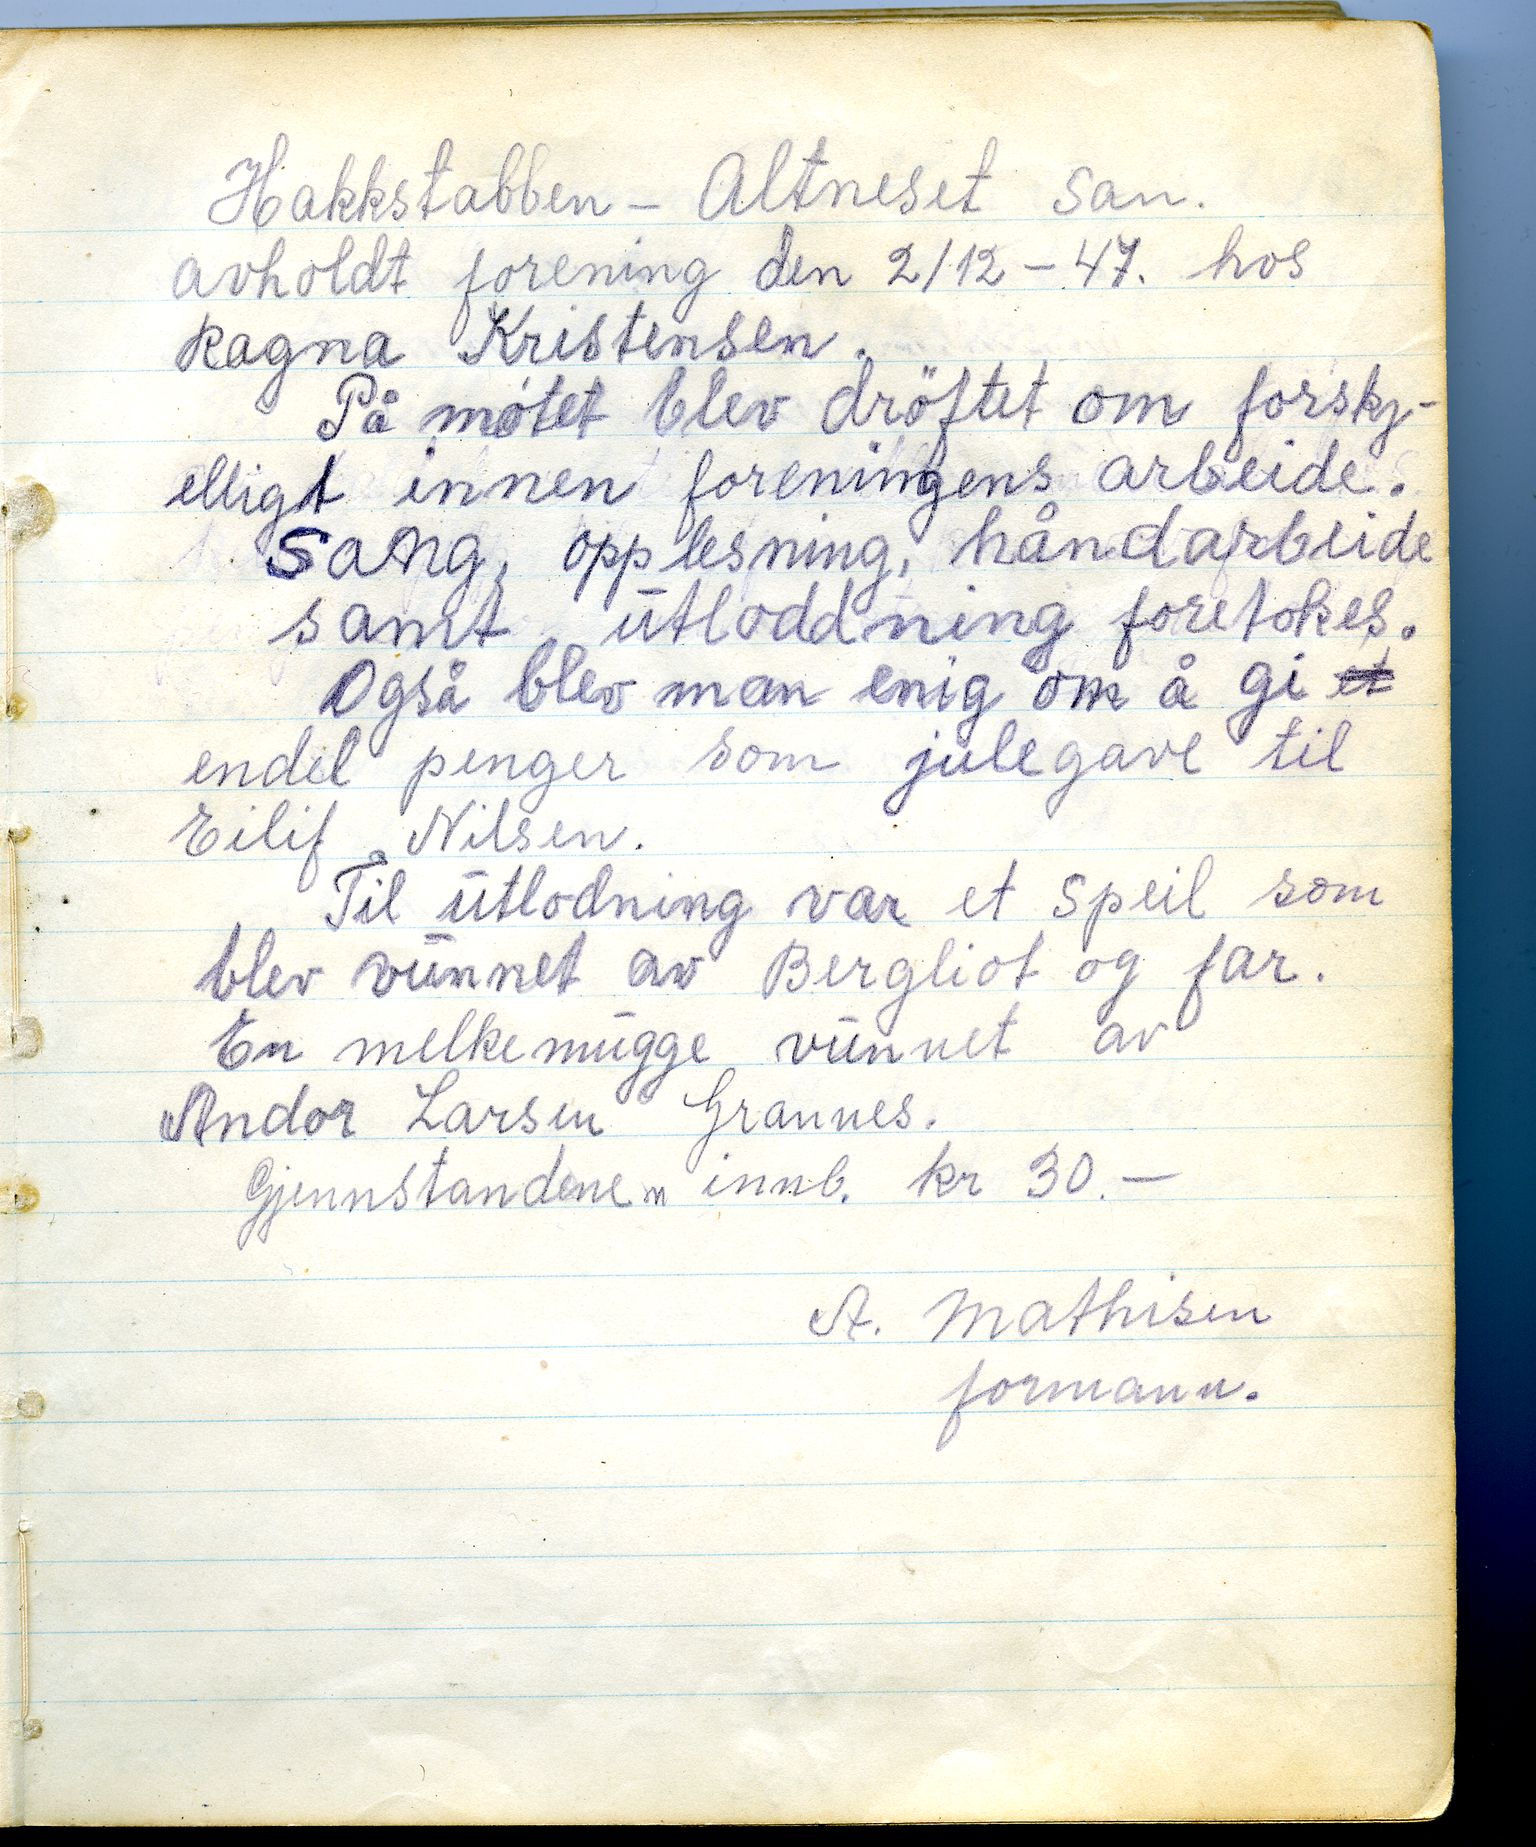 Hakkstabben - Altneset San.
avholdt forening den 2/12 - 47. hos
Ragna Kristensen.
På møtet blev dröftet om forskj-
elligt innen foreningens arbeide.
Sang, opplesning, håndarbeide
samt utloddning foretokes.
Også blev man enig om å gi et
endel penger som julegave til
Eilif Nilsen.
Til utlodning var et speil som
blev vunnet av Bergliot og far.
En melkemugge vunnet av
Andor Larsen Grannes.
Gjennstandene innb. kr 30.-
A. Mathisen
formann.